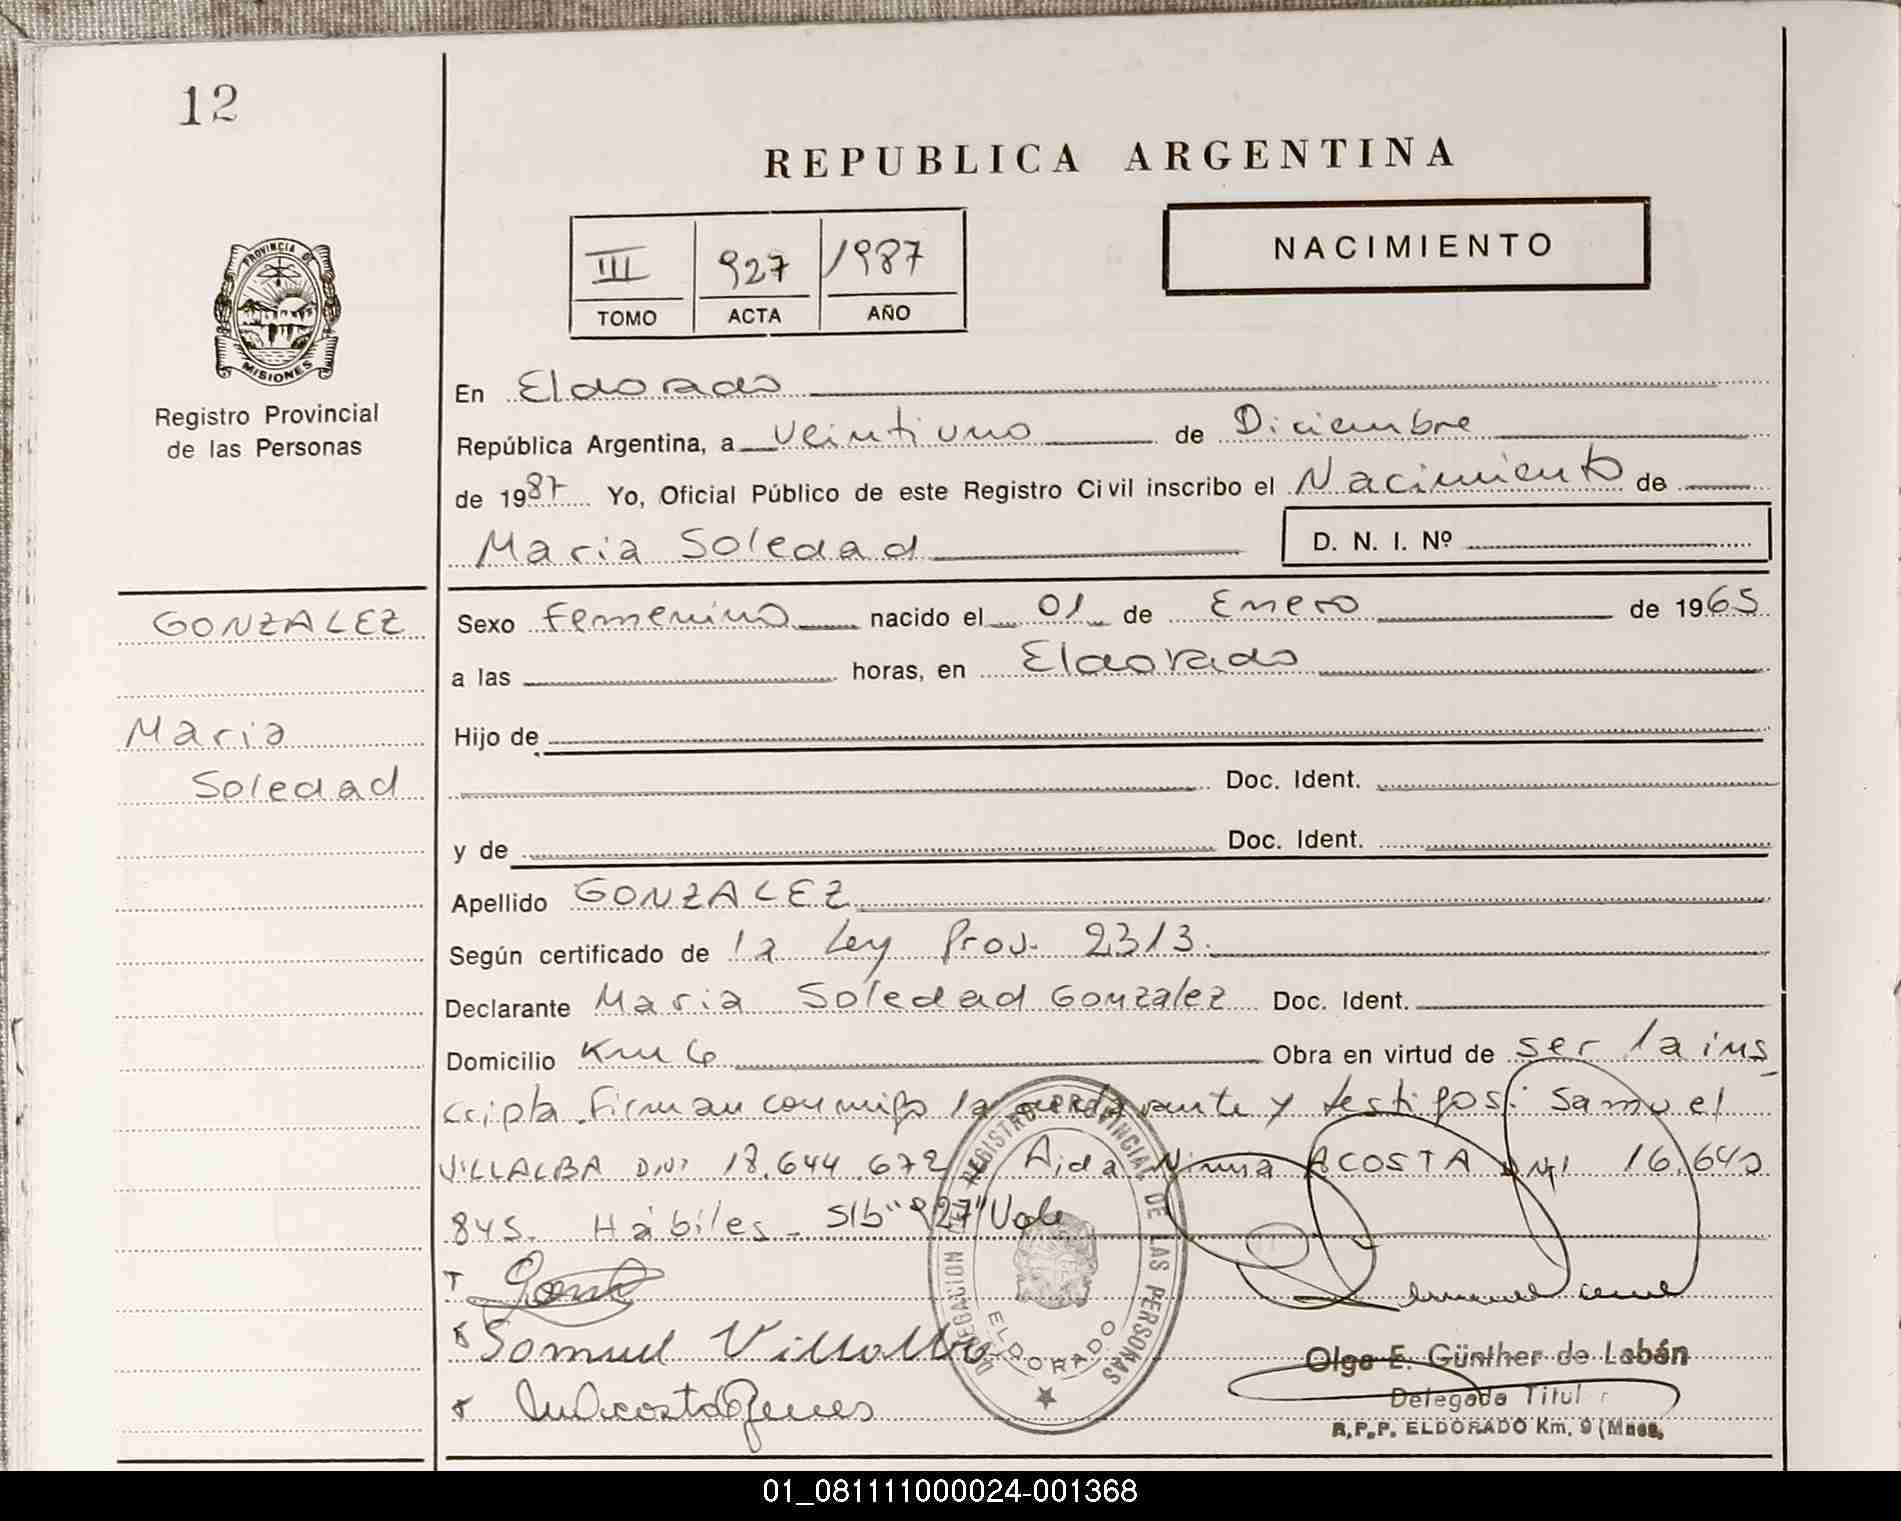 12
REPUBLICA ARGENTINA
III 927 1987
TOMO ACTA AÑO
NACIMIENTO
PROVINCIA DE MISIONES
Registro Provincial
de las Personas
En Eldorado
República Argentina, a veintiuno de Diciembre
de 1987 Yo, Oficial Público de este Registro Civil inscribo el Nacimiento de
Maria Soledad D. N. I. Nº
GONZALEZ
Maria
Soledad
Sexo Femenino nacido el 01 de Enero de 1965
a las horas, en Eldorado
Hijo de
Doc. Ident.
y de Doc. Ident.
Apellido GONZALEZ
Según certificado de la Ley Prov. 2313.
Declarante Maria Soledad Gonzalez Doc. Ident.
Domicilio Km 6 Obra en virtud de ser la ins
cripta. Firman conmigo la y testigos: Samuel
VILLALBA DNI 18.644.672 y Aida Ninna ACOSTA DNI 16.640
845. Hábiles - S/b "927" Vale
Samuel Villalba
DELEGACION DEL REGISTRO PROVINCIAL DE LAS PERSONAS
ELDORADO
Olga E. Günther de Labán
Delegada Titul
R.P.P. ELDORADO Km. 9 (Mnes.
01_081111000024-001368